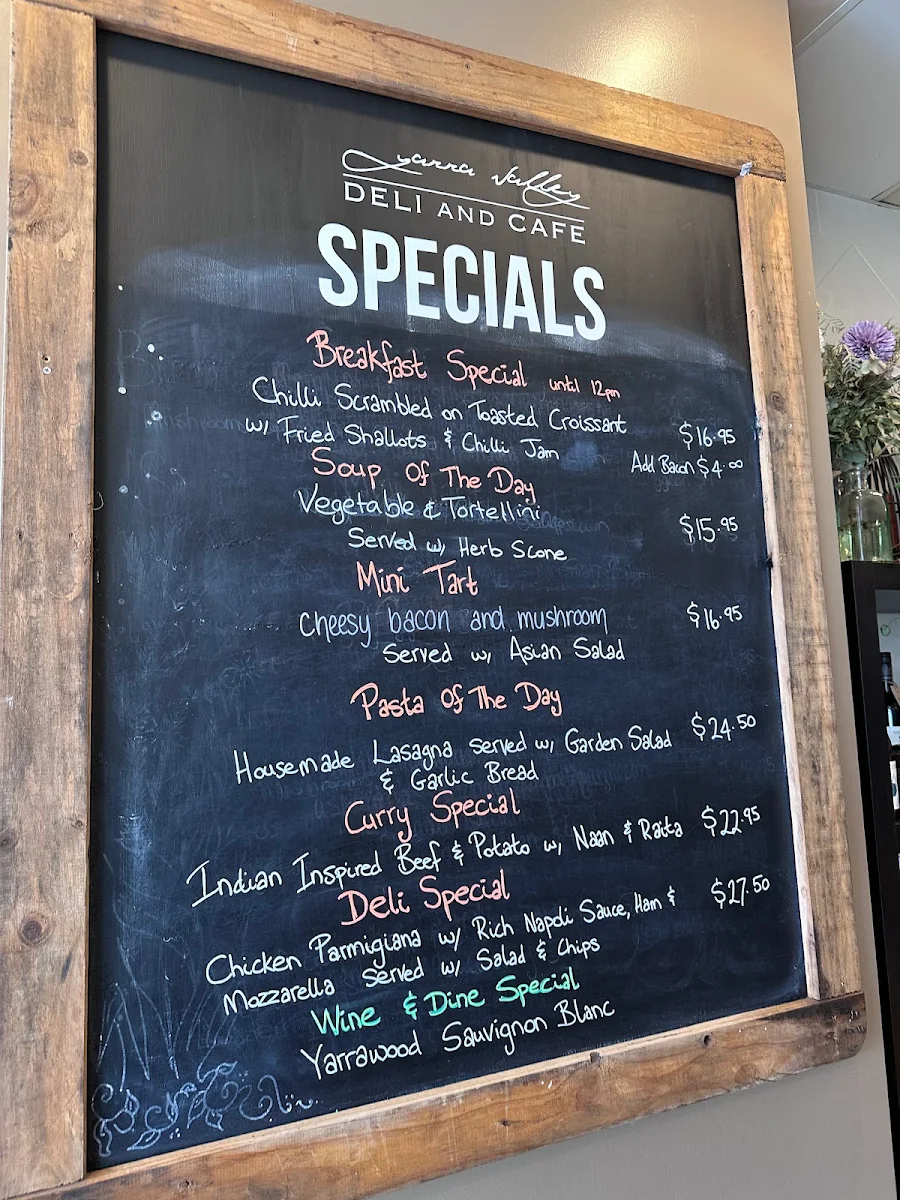 Yarra Valley
DELI AND CAFE
SPECIALS
Breakfast Special until 12pm
Chilli Scrambled on Toasted Croissant
w/ Fried Shallots & Chilli Jam $16.95
Add Bacon $4.00
Soup Of The Day
Vegetable & Tortellini
Served w/ Herb Scone $15.95
Mini Tart
Cheesy bacon and mushroom $16.95
Served w/ Asian Salad
Pasta Of The Day
Housemade Lasagna served w/ Garden Salad $24.50
& Garlic Bread
Curry Special
Indian Inspired Beef & Potato w/ Naan & Raita $22.95
Deli Special
Chicken Parmigiana w/ Rich Napoli Sauce, Ham & $27.50
Mozzarella served w/ Salad & Chips
Wine & Dine Special
Yarrawood Sauvignon Blanc